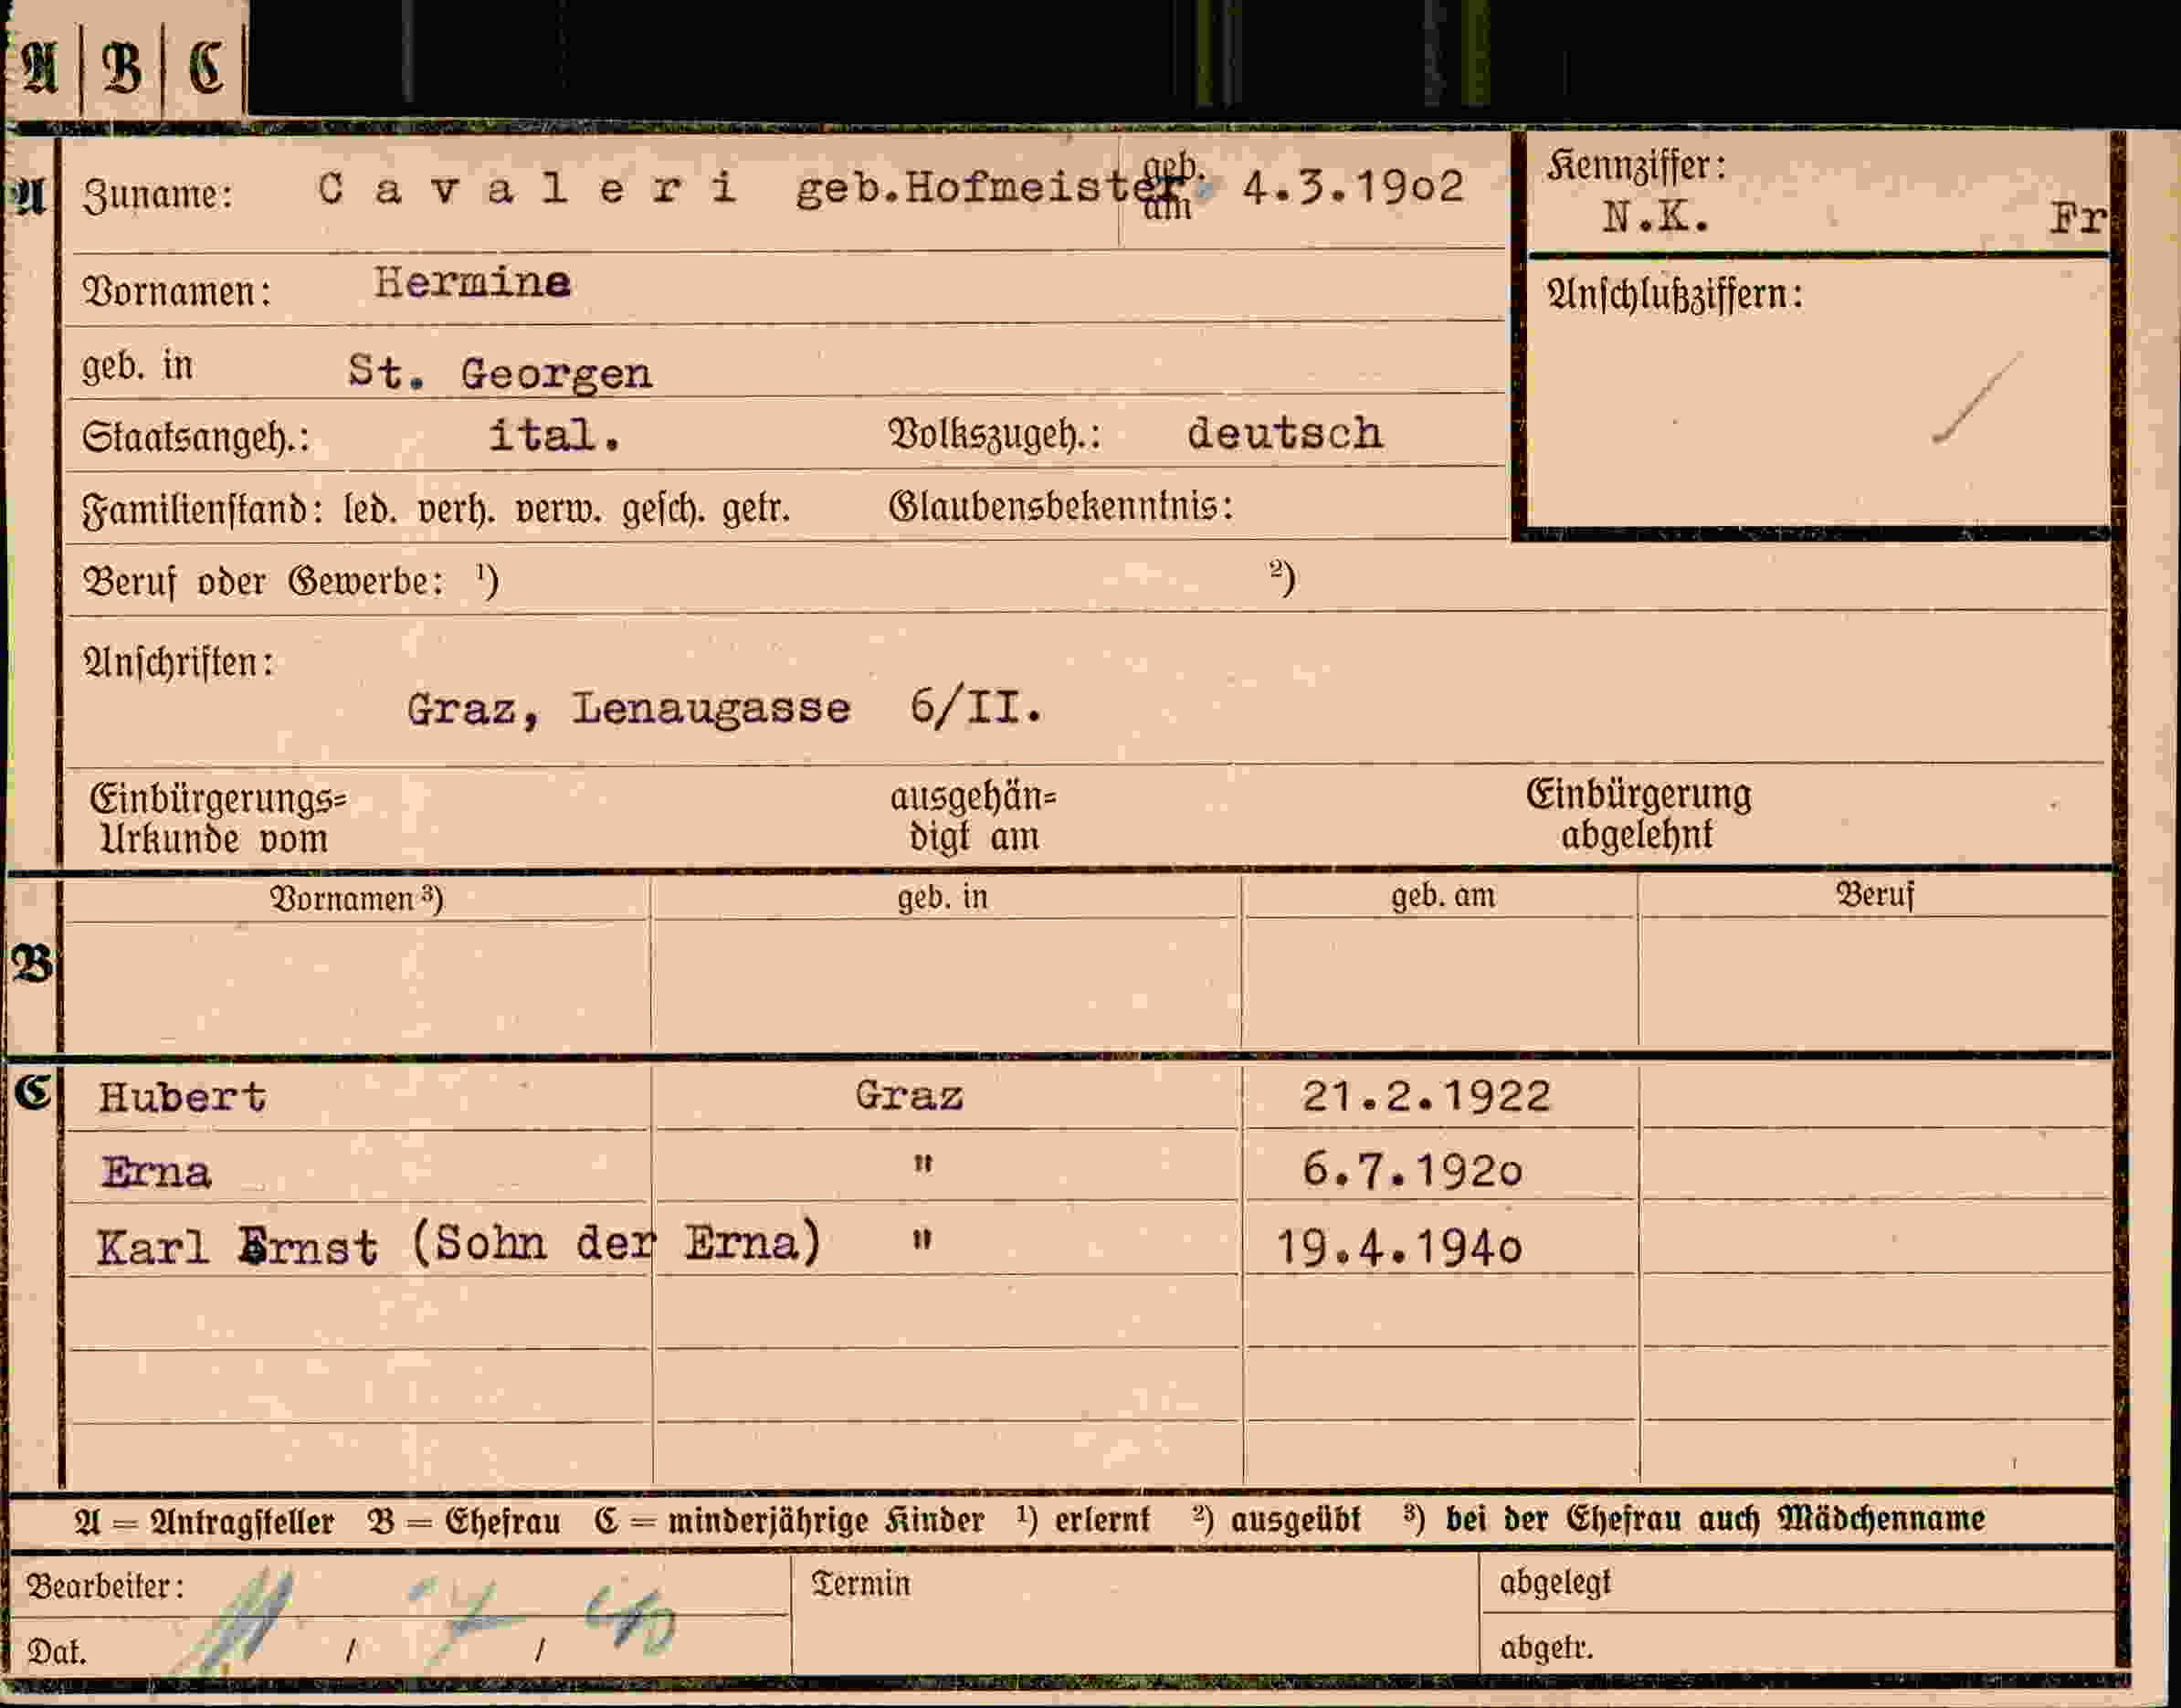 A | B | C
A Zuname: Cavaleri geb.Hofmeister geb. am 4.3.19o2
Kennziffer:
N.K. Fr
Vornamen: Hermine
Anschlußziffern:
geb. in St. Georgen
Staatsangeh.: ital. Volkszugeh.: deutsch
Familienstand: led. verh. verw. gesch. getr. Glaubensbekenntnis:
Beruf oder Gewerbe: ¹) ²)
Anschriften:
Graz, Lenaugasse 6/II.
Einbürgerungs= ausgehän= Einbürgerung
Urkunde vom digt am abgelehnt
Vornamen ³) geb. in geb. am Beruf
B
C Hubert Graz 21.2.1922
Erna " 6.7.192o
Karl Ernst (Sohn der Erna) " 19.4.194o
A = Antragsteller B = Ehefrau C = minderjährige Kinder ¹) erlernt ²) ausgeübt ³) bei der Ehefrau auch Mädchenname
Bearbeiter: Termin abgelegt
Dat. / / abgetr.